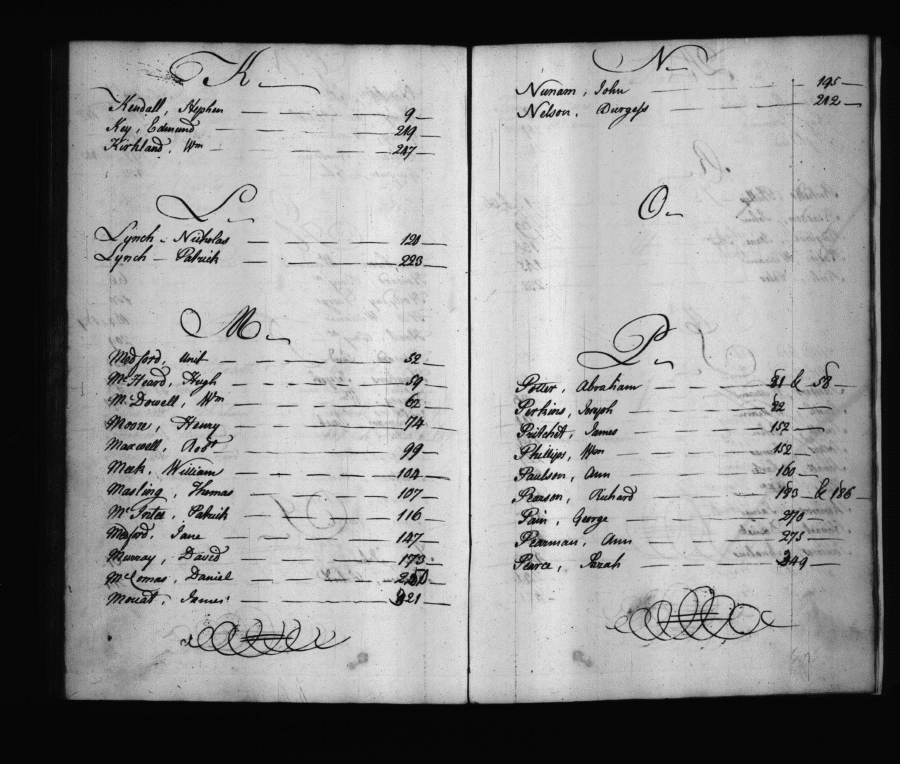 K
Kendall, Stephen 9
Key, Edmund 219
Kirkland, Wm 247
L
Lynch - Nicholas 120
Lynch - Patrick 223
M
Medford, Unit 52
McHeard, Hugh 59
McDowell, Wm 62
Moore, Henry 74
Maxwell, Robt 99
Meek, William 104
Masling, Thomas 107
Patrick 116
Jane 147
Murray, David 173
McComas, Daniel
Mouat, James 321
N
Nunam, John 195
Nelson, Burgess 212
O
P
Potter, Abraham 21 & 58
Perkins, Joseph 22
Pritchet, James 152
Phillips, Wm 152
Paulson, Ann 160
Pearson, Richard 183 & 186
Pain, George 270
Pearman, Ann 275
Pearce, Sarah 349